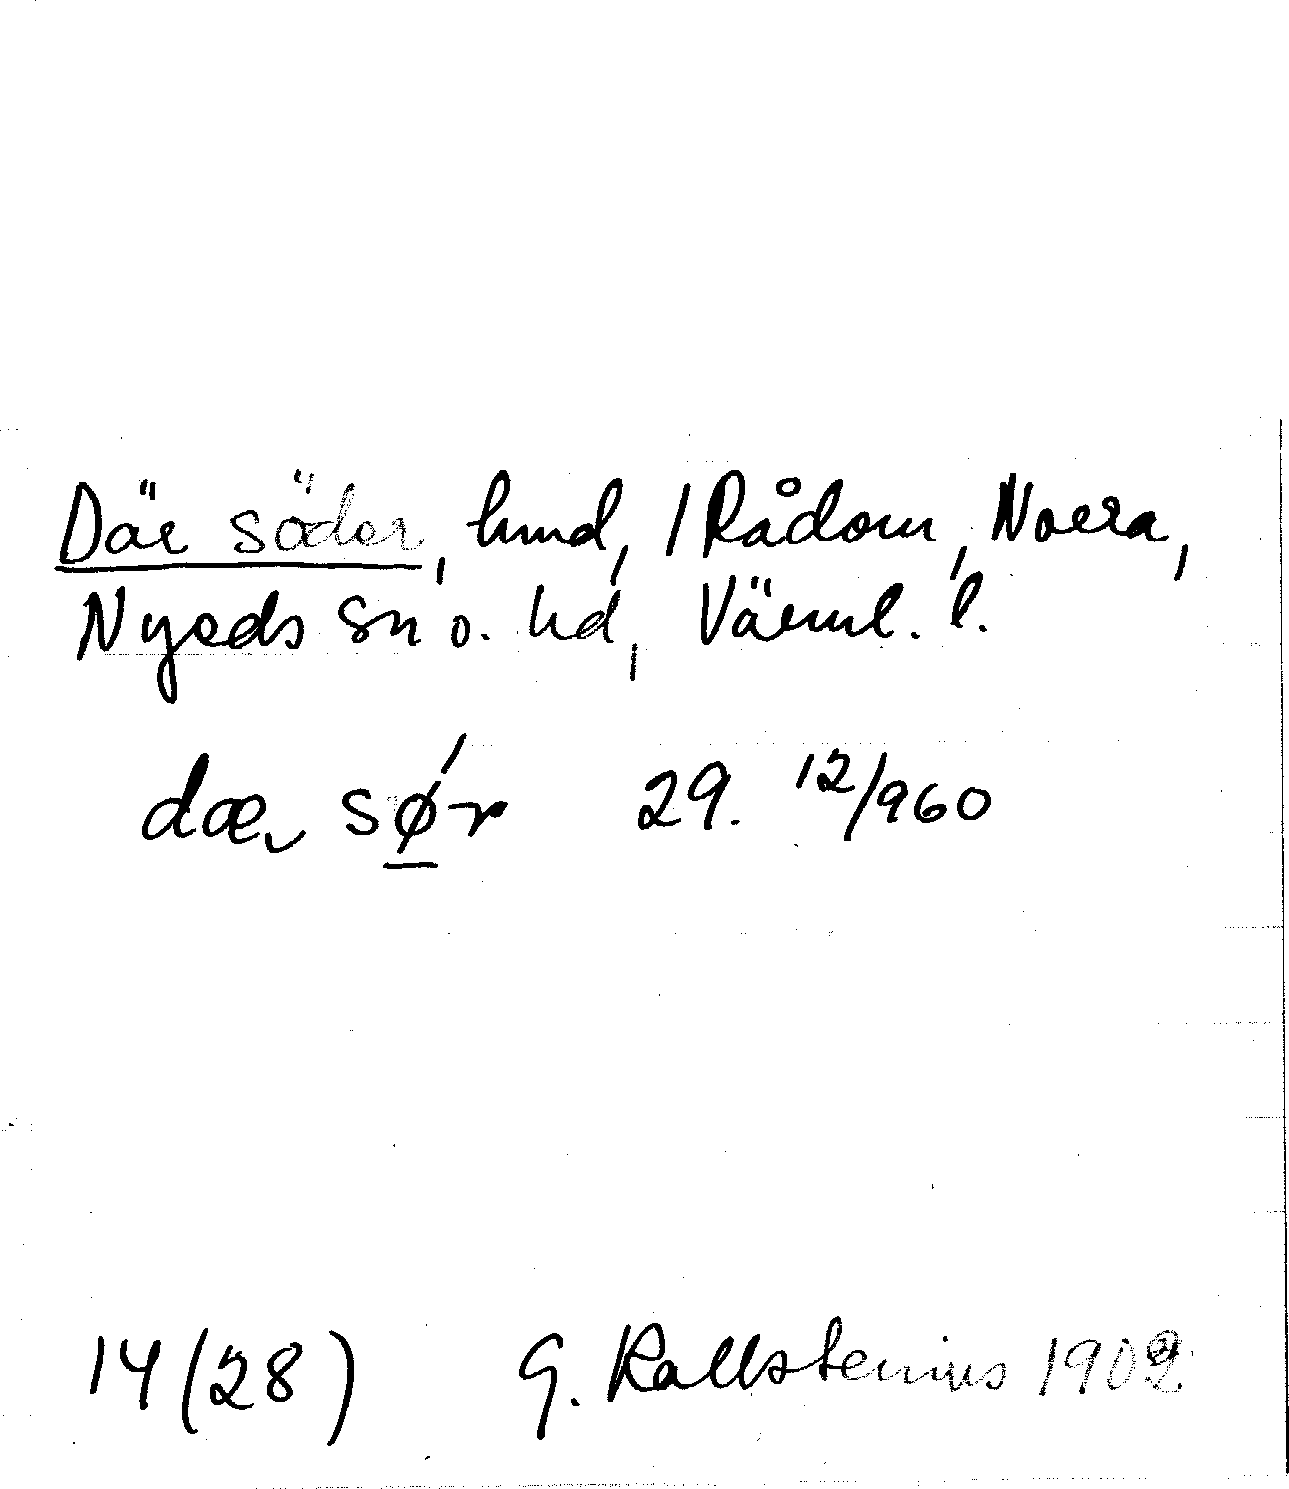 Där söder, hmd, 1 Rådom, Norra,
Nyeds sn o. hd, Värml. l.
dær sǿr 29. 12/960
14 (28) G. Kallstenius 1902